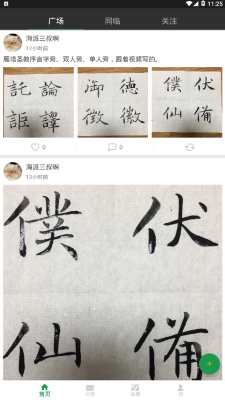 5:25
广场 同临 关注
海派三叔啊
12小时前
雁塔圣教序言字旁、双人旁、单人旁，跟着视频写的。
託 論
詎 譯
御 德
徵 徽
僕 伏
仙 備
0
0
海派三叔啊
13小时前
僕 伏
仙 備
首页